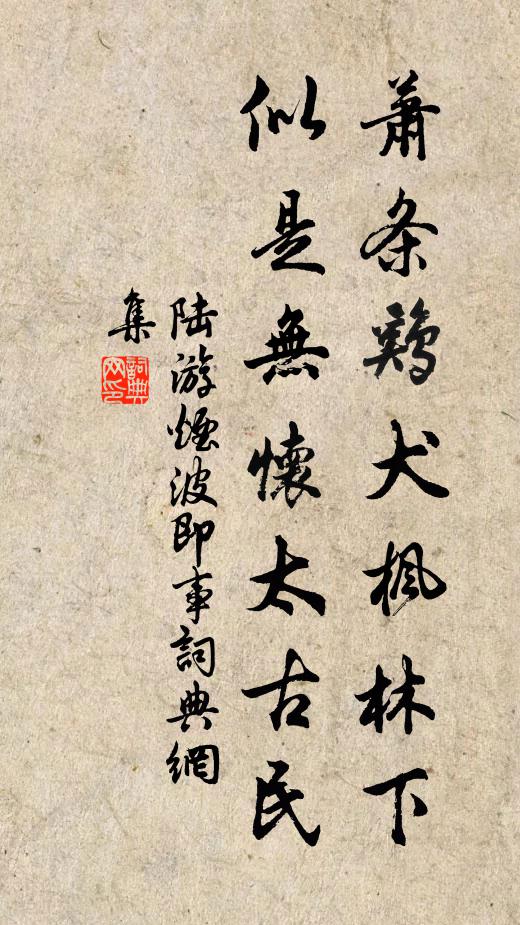 萧条鷄犬枫林下
似是無懷太古民
陆游烟波即事詞典網
集
詞典
网印